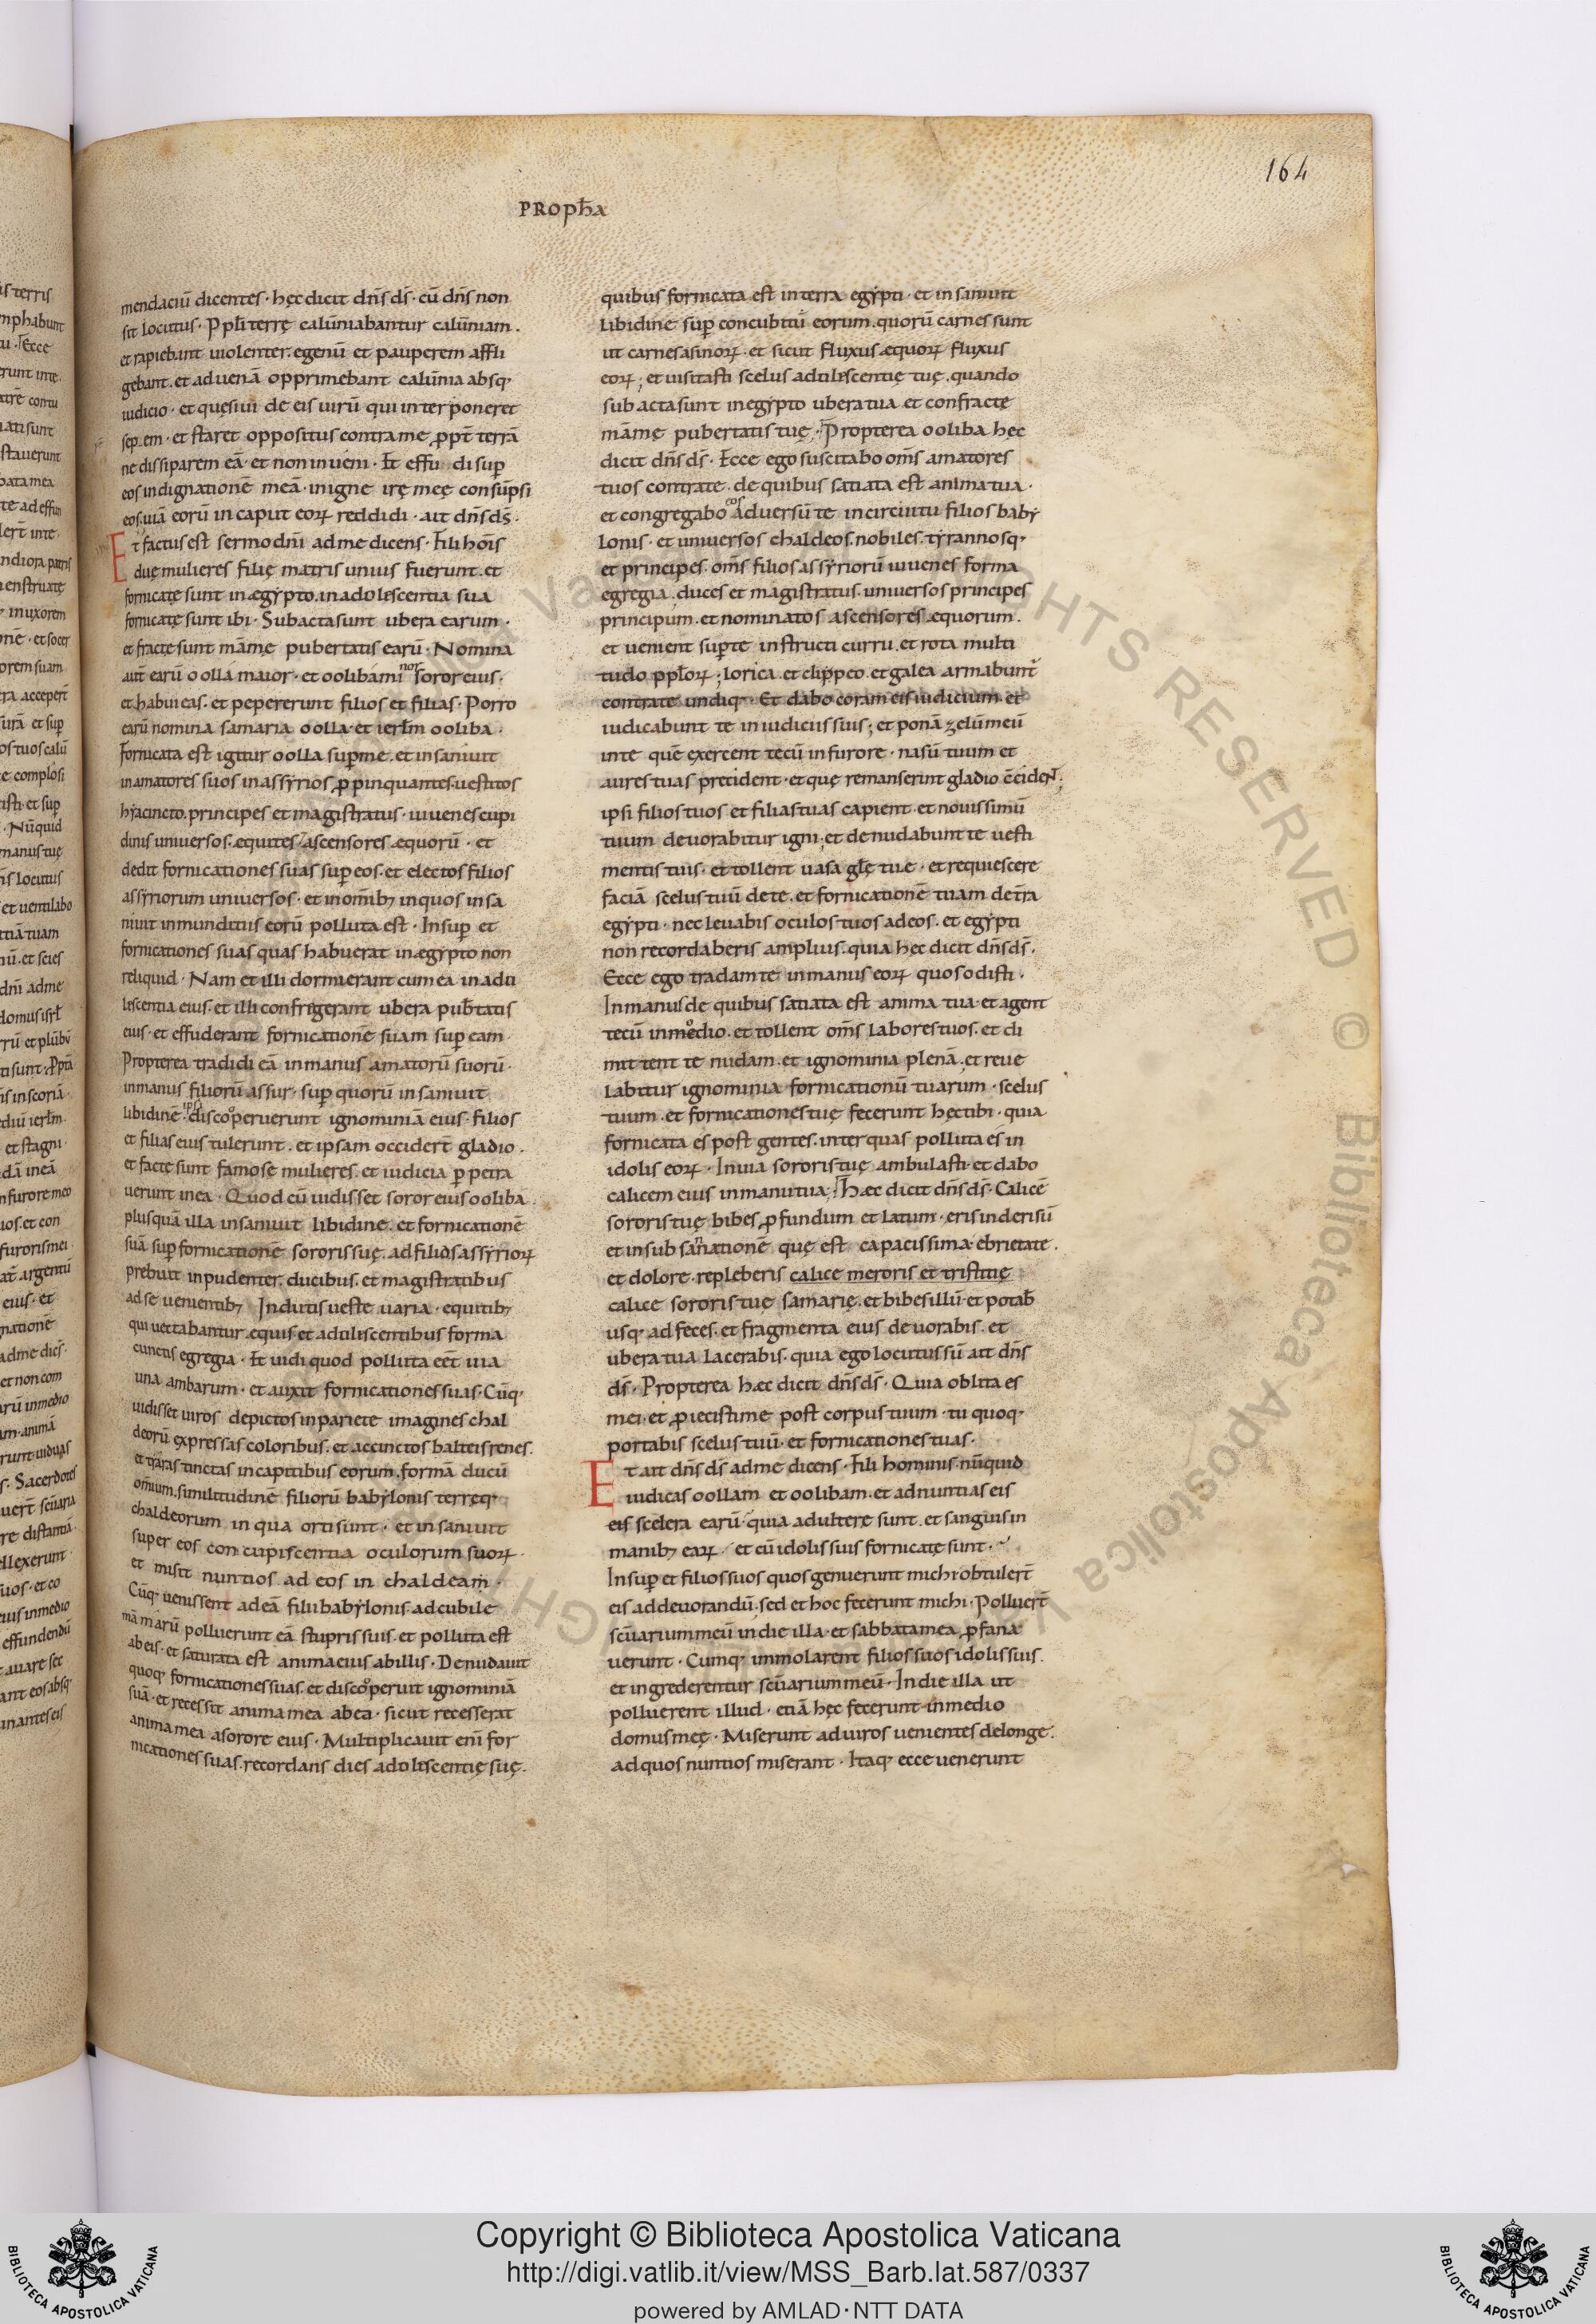 164
PROPHA
mendaciū dicentes · hęc dicit dn̄s ds̄ · cū dn̄s non
sit locutus · Ppli terrę calūniabantur calūniam ·
et rapiebant uiolenter · egenū et pauperem affli
gebant · et aduenā opprimebant calūnia absq;
iudicio · et quęsiui de eis uirū qui interponeret
sepem · et staret oppositus contra me ꝓpt̄ terrā
ne dissiparem eā · et non inueni · Et effudi suꝑ
eos indignationē meā · in igne irę meę consūpsi
eos · uiā eorū in caput eoꝝ reddidi · ait dn̄s ds̄ ·
Et factus est sermo dn̄i ad me dicens · Fili hōis
duę mulieres filię matris unius fuerunt · et
fornicatę sunt in ægypto · in adoliscentia sua
fornicatę sunt ibi · Subacta sunt ubera earum ·
et fractę sunt mām̨ę pubertatis earū · Nomina
aut̄ earū oolla maior · et oolibami nor soror eius ·
et habui eas · et pepererunt filios et filias · Porro
earū nomina samaria oolla · et ierl̄m ooliba ·
Fornicata est igitur oolla suꝑ me · et insaniuit
in amatores suos in assyrios ꝓpinquantes · uestitos
hyacincto · principes et magistratus · iuuenes cupi
dinis uniuersos · æquites · ascensores æquorū · et
dedit fornicationes suas suꝑ eos · et electos filios
assyriorum uniuersos · et in om̄ib; in quos insa
niuit inmunditiis eorū polluta est · Insuꝑ et
fornicationes suas quas habuerat in ægypto non
reliquid · Nam et illi dormierant cum ea in adu
liscentia eius · et illi confrigerant ubera pub̄tatis
eius · et effuderant fornicationē suam suꝑ eam ·
Propterea tradidi eā in manus amatorū suorū ·
in manus filiorū assur · suꝑ quorū insaniuit
libidinē · ipsi discooperuerunt ignominiā eius · filios
et filias eius tulerunt · et ipsam occidert̄ gladio ·
et factę sunt famose mulieres · et iudicia ꝑpetra
uerunt in ea · Quod cū uidisset soror eius ooliba ·
plusquā illa insaniuit libidine · et fornicationē
suā suꝑ fornicationē sororis suę · ad filios assyrioꝝ
prebuit inpudenter · ducibus · et magistratibus
ad se uenientib; Indutis ueste uaria · equitib;
qui uectabantur equis · et aduliscentibus forma
cunctis egregia · Et uidi quod polluta eēt uia
una ambarum · et auxit fornicationes suas · Cūq;
uidisset uiros depictos in pariete imagines chal
deorū expressas coloribus · et accinctos balteis renes ·
et tiaras tinctas in capitibus eorum · formā ducū
om̄ium · similitudinē filiorū babylonis terręq;
chaldeorum in qua orti sunt · et insaniuit
super eos concupiscentia oculorum suoꝝ ·
et misit nuntios ad eos in chaldeam ·
Cūq; uenissent ad eā filii babylonis · ad cubile
māmarū polluerunt eā stupris suis · et polluta est
ab eis · et saturata est anima eius ab illis · Denudauit
quoq; fornicationes suas · et discooperuit ignominiā
suā · et recessit anima mea ab ea · sicut recesserat
anima mea a sorore eius · Multiplicauit eni̅ for
nicationes suas · recordans dies adoliscentię suę ·
quibus fornicata est in terra egypti · et insaniuit
libidine suꝑ concubitū eorum · quorū carnes sunt
ut carnes asinoꝝ · et sicut fluxus æquoꝝ fluxus
eoꝝ ; et uisitasti scelus adulescentię tuę · quando
subacta sunt in egypto ubera tua et confracte
mām̨ę pubertatis tuę · Propterea ooliba hęc
dicit dn̄s ds̄ · Ecce ego suscitabo om̄s amatores
tuos contra te · de quibus satiata est anima tua ·
et congregabo eos aduersū te in circuitu filios baby
lonis · et uniuersos chaldeos · nobiles · tyrannosq;
et principes · om̄s filios assyriorū iuuenes forma
egregia · duces et magistratus · uniuersos principes
principum · et nominatos ascensores æquorum ·
et uenient suꝑ te instructi curru · et rota multi
tudo ppl̄oꝝ ; lorica · et clippeo · et galea armabunt̄
contra te undiq; · Et dabo coram eis iudicium et
iudicabunt te in iudiciis suis ; et ponā zelū meū
in te quē exercent tecū in furore · nasū tuum et
aures tuas precident · et quę remanserint gladio c̄cident̄ ;
ipsi filios tuos et filias tuas capient · et nouissimū
tuum deuorabitur igni ; et denudabunt te uesti
mentis tuis · et tollent uasa gl̄ę tue · et requiescere
faciā scelus tuū de te · et fornicationē tuam de tr̄a
egypti · nec leuabis oculos tuos ad eos · et egypti
non recordaberis amplius · quia hęc dicit dn̄s ds̄ ·
Ecce ego tradam te in manus eoꝝ quos odisti ·
In manus de quibus satiata est anima tua · et agent
tecū in modio · et tollent om̄s labores tuos · et di
mittent te nudam · et ignominia plenā · et reue
labitur ignominia fornicationū tuarum · scelus
tuum · et fornicationes tuę fecerunt hęc tibi · quia
fornicata es post gentes · inter quas polluta es in
idolis eoꝝ · In uia sororis tuę ambulasti · et dabo
calicem eius in manu tua ; Hæc dicit dn̄s ds̄ · Calicē
sororis tuę bibes ꝓfundum et latum · eris in derisū
et in subsannationē quę est capacissima · ebrietate ·
et dolore · repleberis calice meroris et tristitię
calice sororis tuę samarię · et bibes illū · et potab̄
usq; ad feces · et fragmenta eius deuorabis · et
ubera tua lacerabis · quia ego locutus sū ait dn̄s
ds̄ · Propterea hæc dicit dn̄s ds̄ · Quia oblita es
mei · et ꝓiecisti me post corpus tuum · tu quoq;
portabis scelus tuū · et fornicationes tuas ·
Et ait dn̄s ds̄ ad me dicens · Fili hominis · nūquid
iudicas oollam et oolibam · et adnuntias eis
eis scelera earū · quia adultere sunt · et sanguis in
manib; eaꝝ · et cū idolis suis fornicatę sunt ·
Insuꝑ et filios suos quos genuerunt michi obtulert̄
eis ad deuorandū · sed et hoc fecerunt michi · Polluert̄
sc̄uarium meū in die illa · et sabbata mea ꝓfana
uerunt · Cumq; immolarent filios suos idolis suis ·
et ingrederentur sc̄uarium meū · In die illa ut
polluerent illud · etiā hęc fecerunt in medio
domus meę · Miserunt ad uiros uenientes de longe ·
ad quos nuntios miserant · Itaq; ecce uenerunt
Copyright © Biblioteca Apostolica Vaticana
http://digi.vatlib.it/view/MSS_Barb.lat.587/0337
powered by AMLAD·NTT DATA
BIBLIOTECA APOSTOLICA VATICANA
BIBLIOTECA APOSTOLICA VATICANA